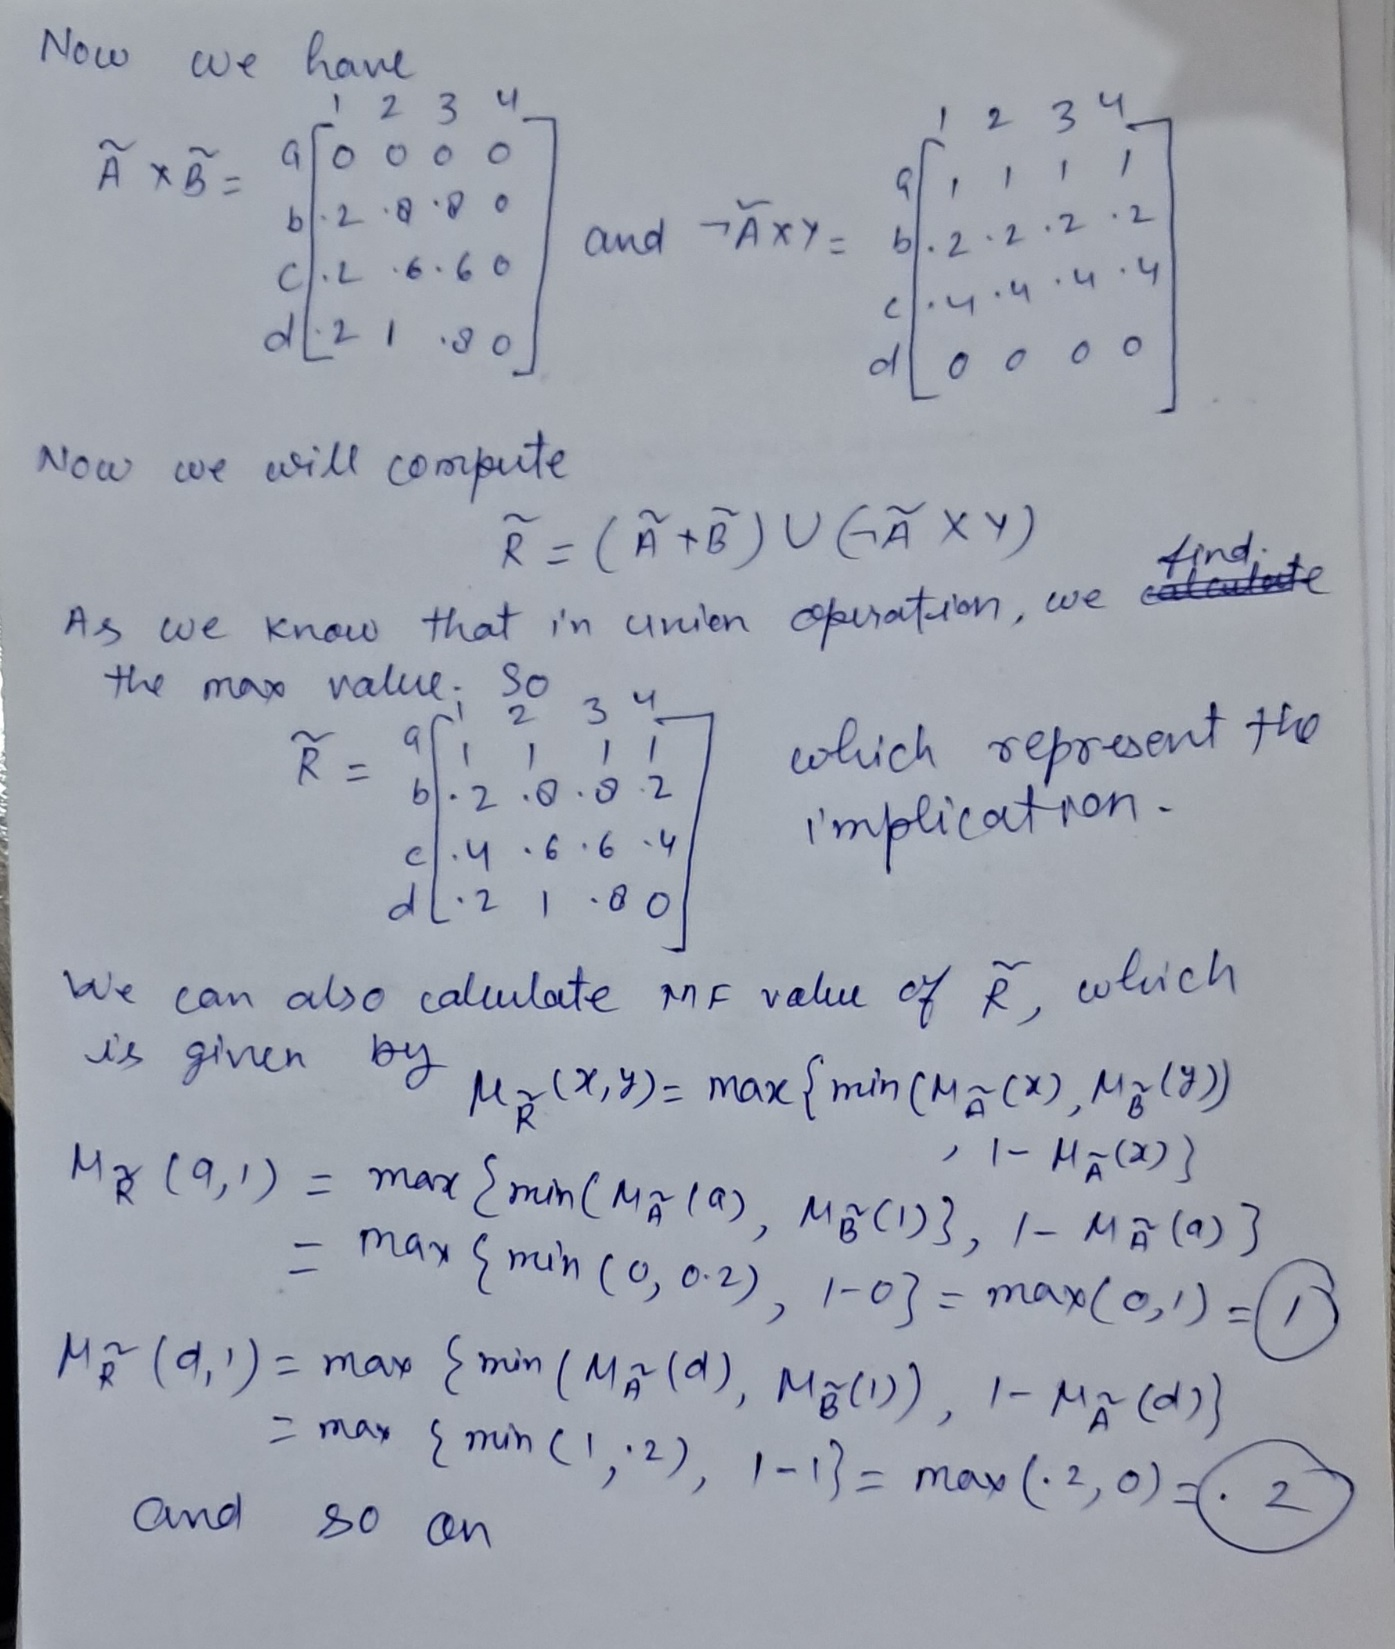 Now we have
1 2 3 4
Ã × B̃ = a [ 0 0 0 0
b .2 .8 .8 0
c .2 .6 .6 0
d .2 1 .8 0 ]
and ¬Ã × Y =
1 2 3 4
a [ 1 1 1 1
b .2 .2 .2 .2
c .4 .4 .4 .4
d 0 0 0 0 ]
Now we will compute
R̃ = (Ã + B̃) ∪ (¬Ã × Y)
As we know that in union operation, we find
the max value. So
1 2 3 4
R̃ = a [ 1 1 1 1
b .2 .8 .8 .2
c .4 .6 .6 .4
d .2 1 .8 0 ]
which represent the
implication.
We can also calculate MF value of R̃, which
is given by
μR̃ (x,y) = max{min(μÃ(x), μB̃(y))
, 1 - μÃ(x)}
μR̃ (a,1) = max {min(μÃ(a), μB̃(1)}, 1 - μÃ(a)}
= max {min(0, 0.2), 1-0} = max(0,1) = 1
μR̃ (d,1) = max {min(μÃ(d), μB̃(1)), 1 - μÃ(d)}
= max {min(1, .2), 1-1} = max(.2, 0) = .2
and so on